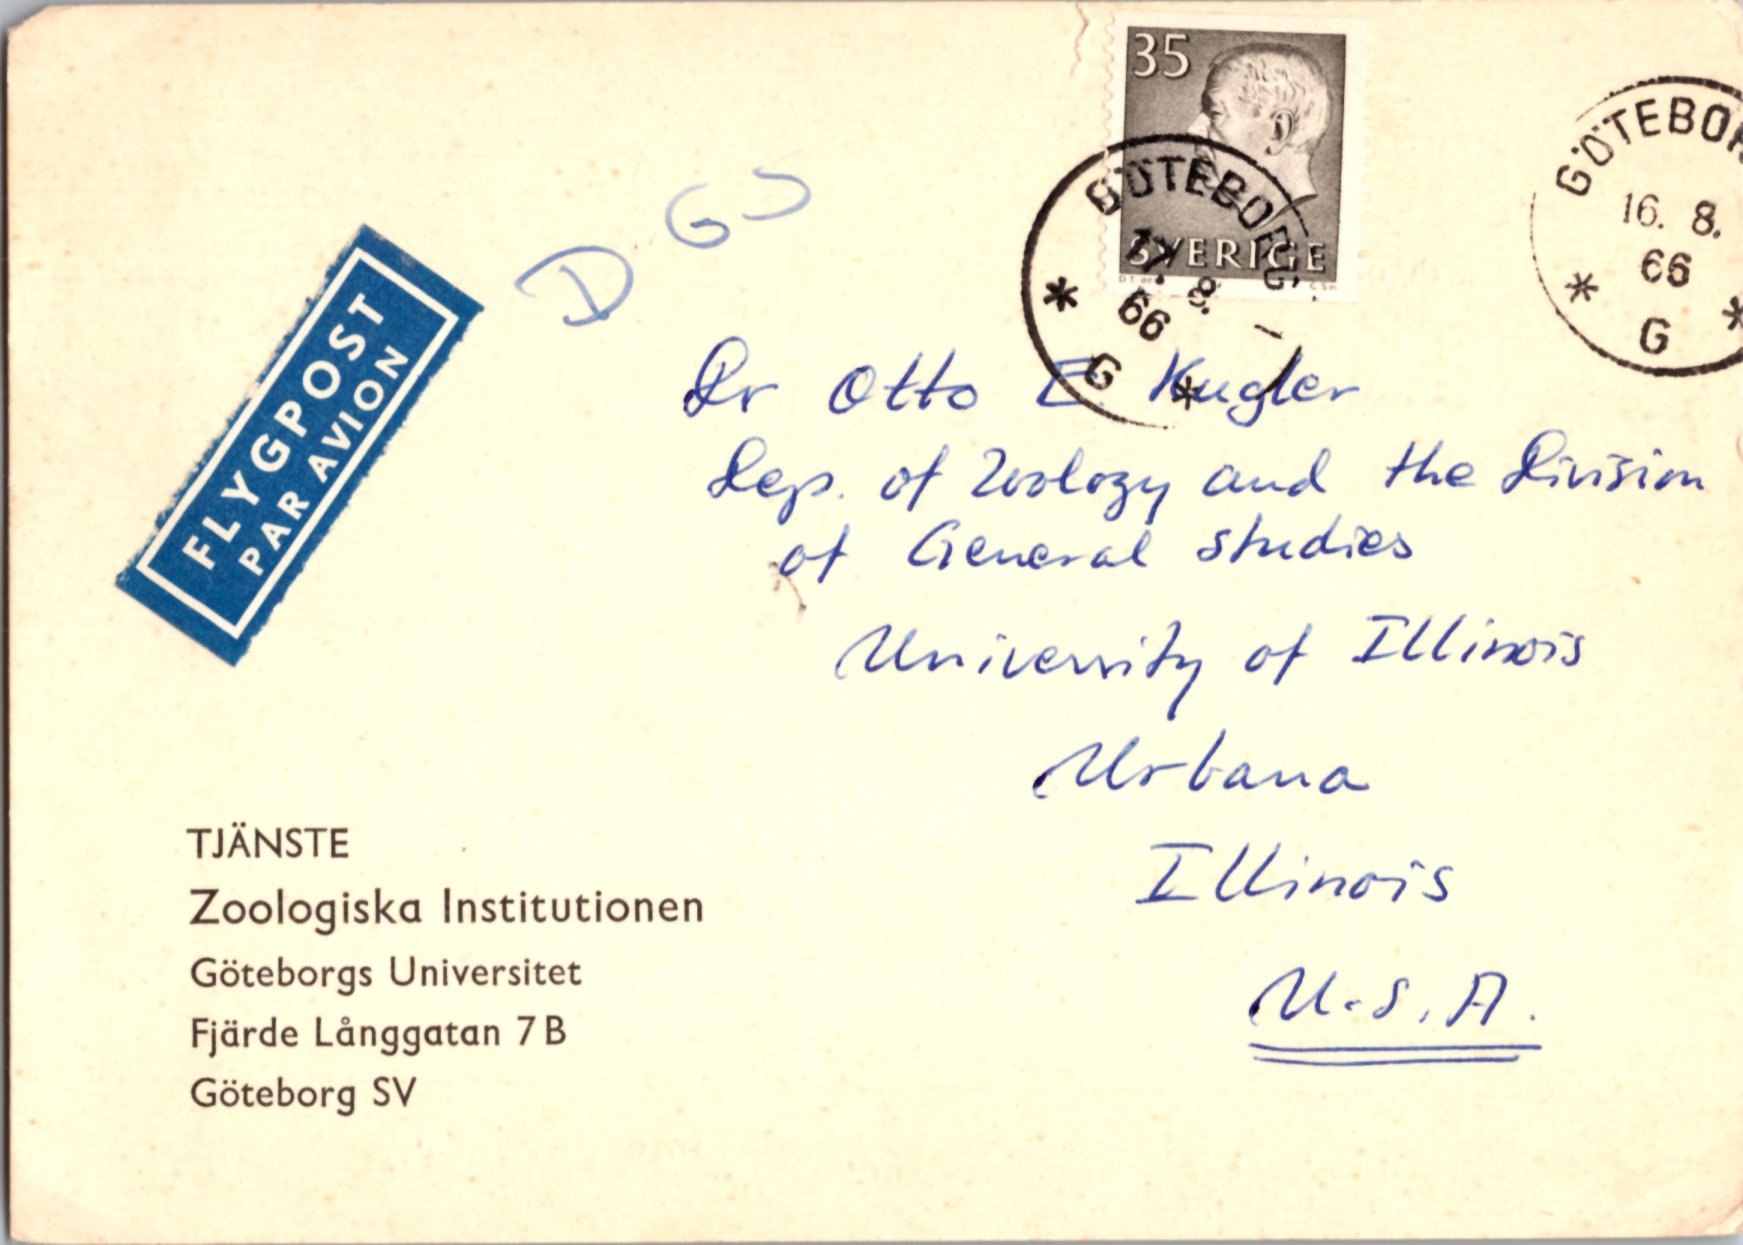 35
SVERIGE
GÖTEBORG
17. 8.
66
G
GÖTEBOR
16. 8.
66
G
D G S
FLYGPOST
PAR AVION
Dr Otto E. Kugler
Dep. of Zoology and the Division
of General studies
University of Illinois
Urbana
Illinois
U.S.A.
TJÄNSTE
Zoologiska Institutionen
Göteborgs Universitet
Fjärde Långgatan 7 B
Göteborg SV